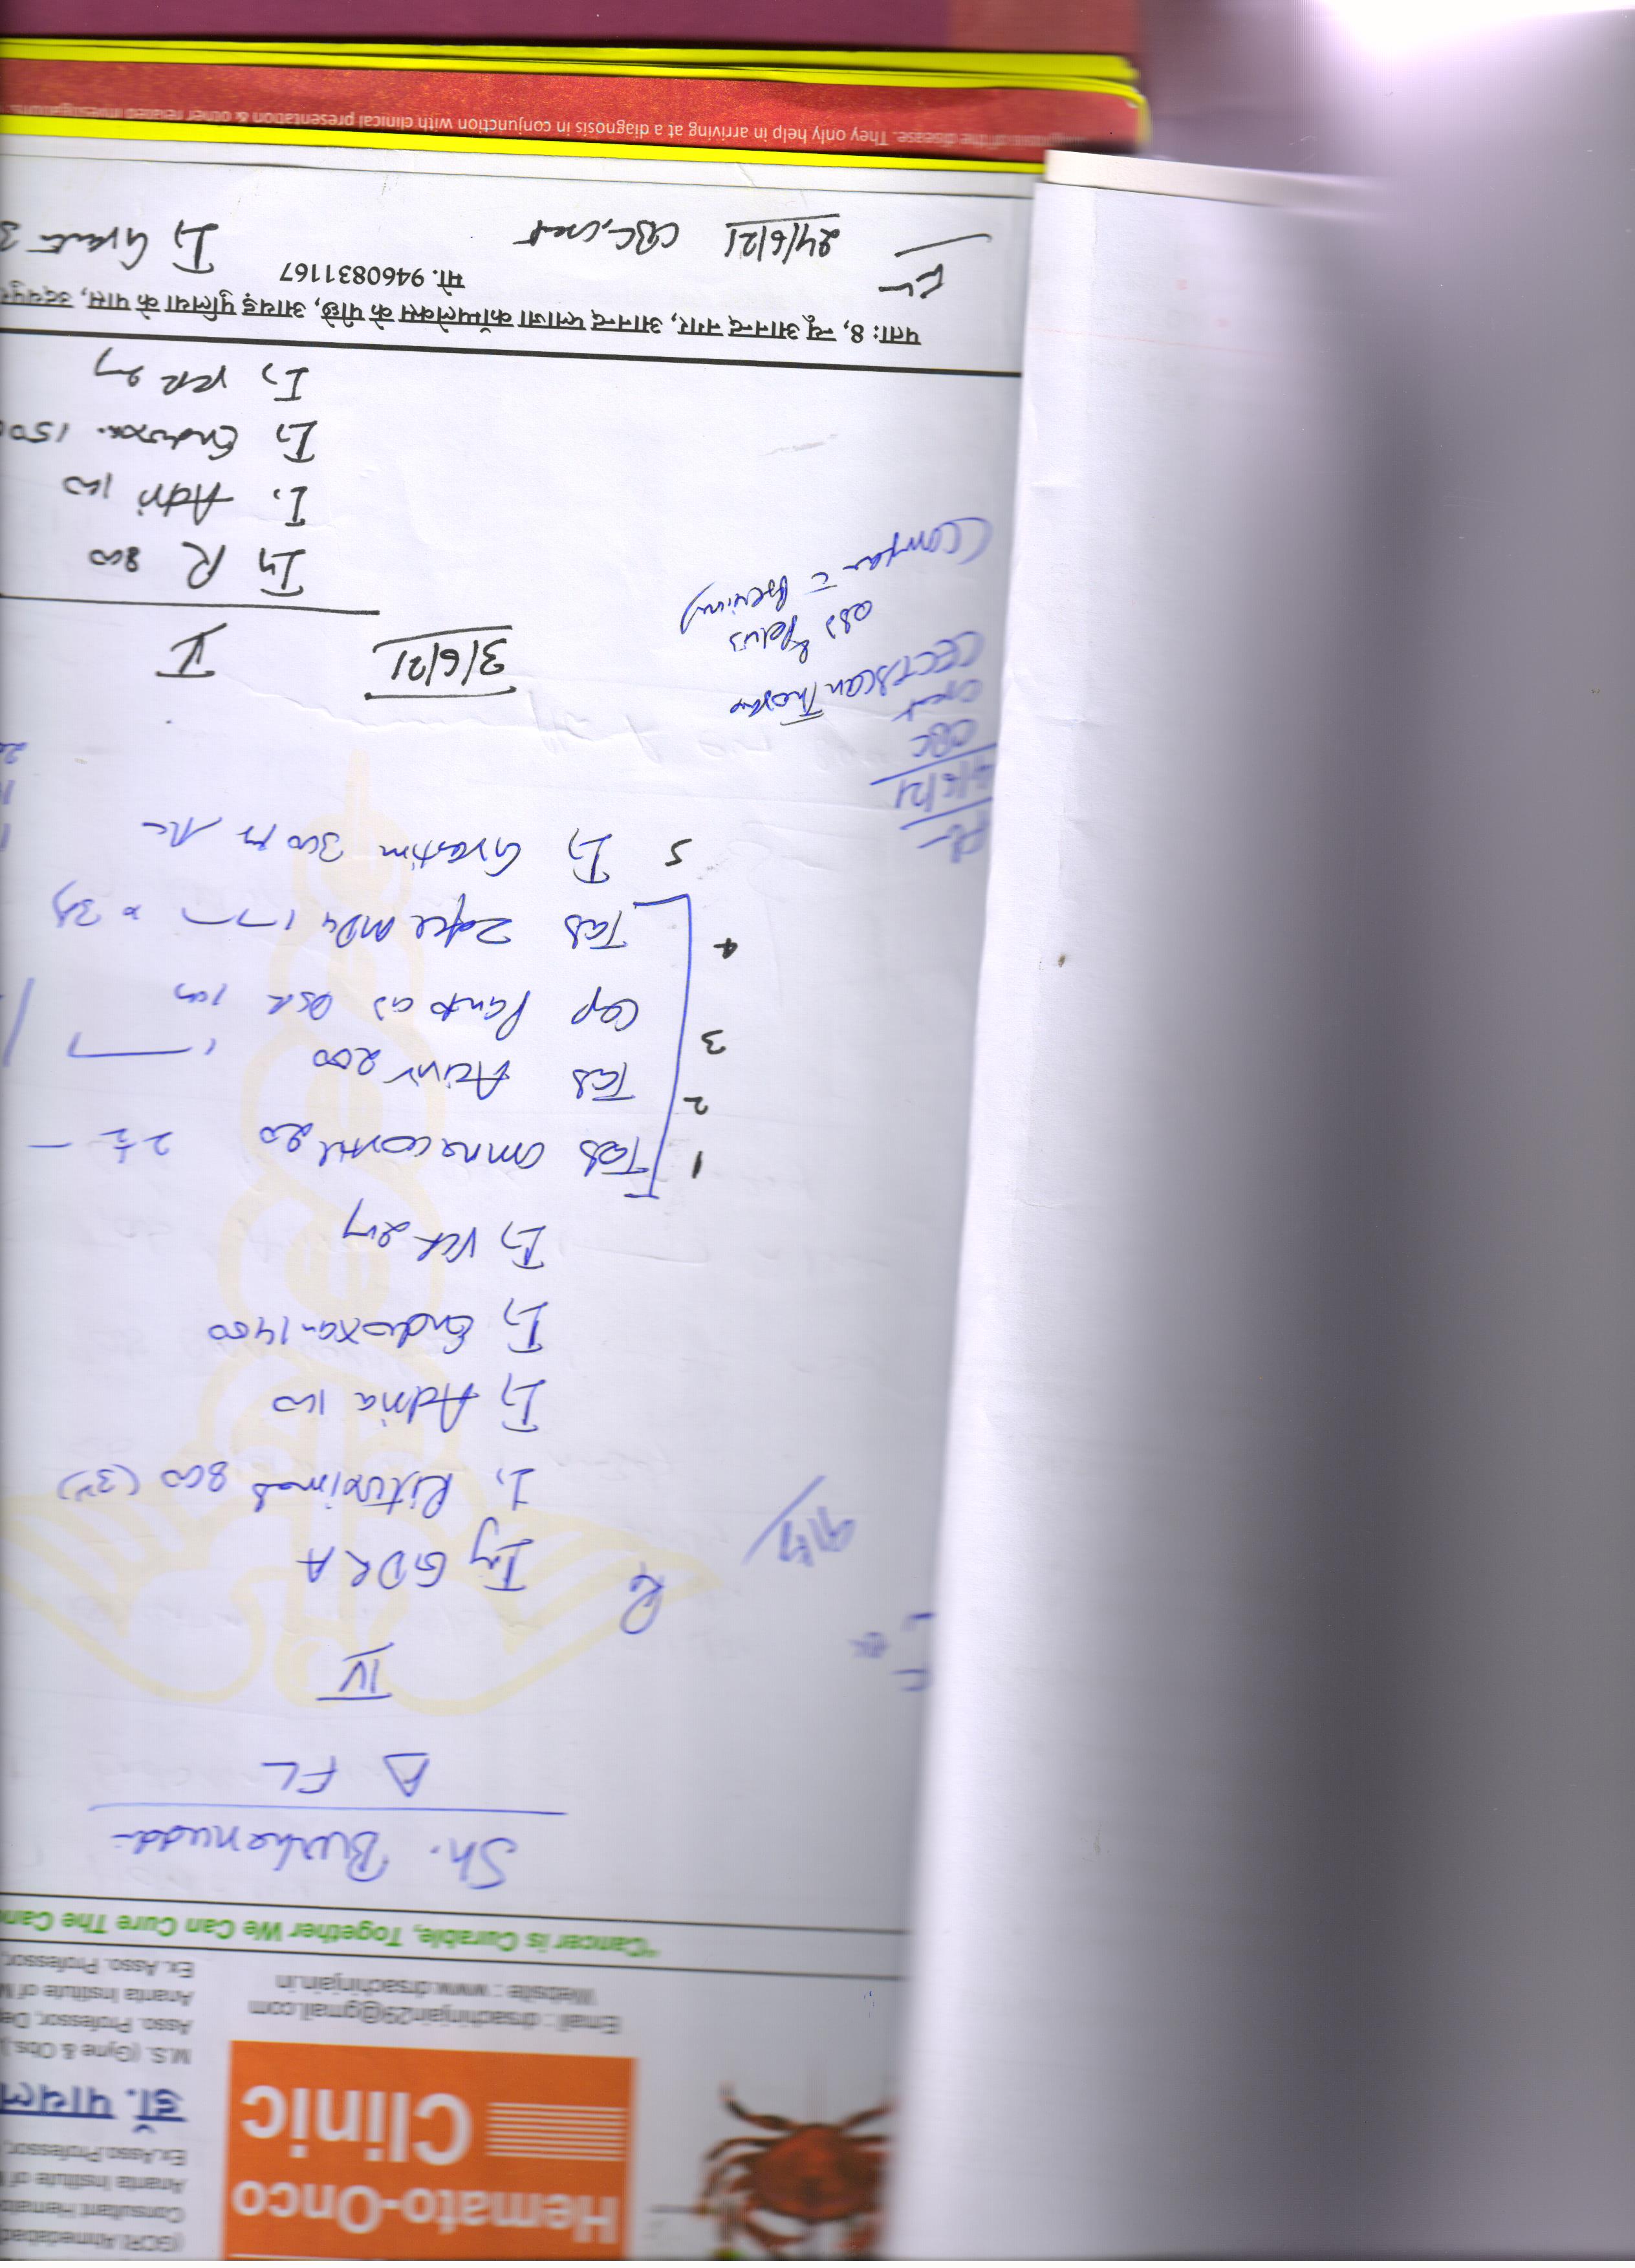 (GCRI Ahmedabad
Consultant Hemato
Ananta Institute of
Ex.Asso.Professor,
Hemato-Onco
Clinic
डॉ. पायल
M.S. (Gyne & Obs.)
Asso. Professor, De
Ananta Institute of M
Ex. Asso. Professor,
Email : drsachinjain29@gmail.com
Website : www.drsachinjain.in
"Cancer is Curable, Together We Can Cure The Canc
Sh. Burhanuddi
Δ FL
IV
R
Inj GDRA
Inj Rituximab 800 (3rd)
Inj Adria 100
Inj Endoxan 1400
Inj VCR 2mg
1 Tab omnacortil 20 2½ -
2 Tab Acivir 200
3 Cap Pantop DSR 1 od
4 Tab Zofer MD4 x 3d
5 Inj Grastim 300 μg sc
CBC
creat
CECT Scan Thorax
abd & Pelvis
(Compare c̄ previous)
3/6/21 V
Inj R 800
Inj Adri 100
Inj Endoxan 150
Inj VCR 2mg
पताः 8, न्यू आनन्द नगर, आनन्द प्लाजा कॉम्पलेक्स के पीछे, आयड़ पुलिया के पास, उदयपुर
मो. 9460831167
24/6/21 CBC, creat
Inj Grasti 3
of the disease. They only help in arriving at a diagnosis in conjunction with clinical presentation & other related investigations.